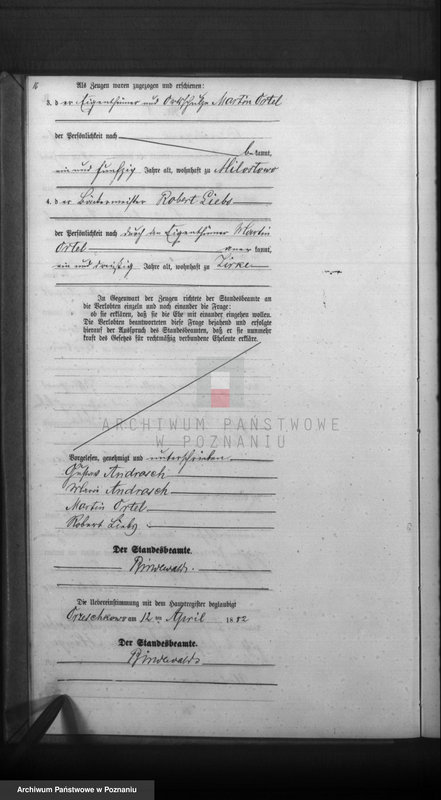 Als Zeugen waren zugezogen und erschienen:
3. der Eigenthümer und Ortsschulze Martin Ortel
der Persönlichkeit nach
bekannt,
ein und fünfzig Jahre alt, wohnhaft zu Milostowo
4. der Bäckermeister Robert Liebs
der Persönlichkeit nach durch den Eigenthümer Martin
Ortel anerkannt,
ein und dreißig Jahre alt, wohnhaft zu Zirke
In Gegenwart der Zeugen richtete der Standesbeamte an
die Verlobten einzeln und nach einander die Frage:
ob sie erklären, daß sie die Ehe mit einander eingehen wollen.
Die Verlobten beantworteten diese Frage bejahend und erfolgte
hierauf der Ausspruch des Standesbeamten, daß er sie nunmehr
kraft des Gesetzes für rechtmäßig verbundene Eheleute erkläre.
ARCHIWUM PAŃSTWOWE
W POZNANIU
Vorgelesen, genehmigt und unterschrieben
Gustav Andrasch
Andrasch
Martin Ortel
Robert Liebs
Der Standesbeamte.
Die Uebereinstimmung mit dem Hauptregister beglaubigt
Orzeschkowo am 12ten April 1882
Der Standesbeamte.
Archiwum Państwowe w Poznaniu